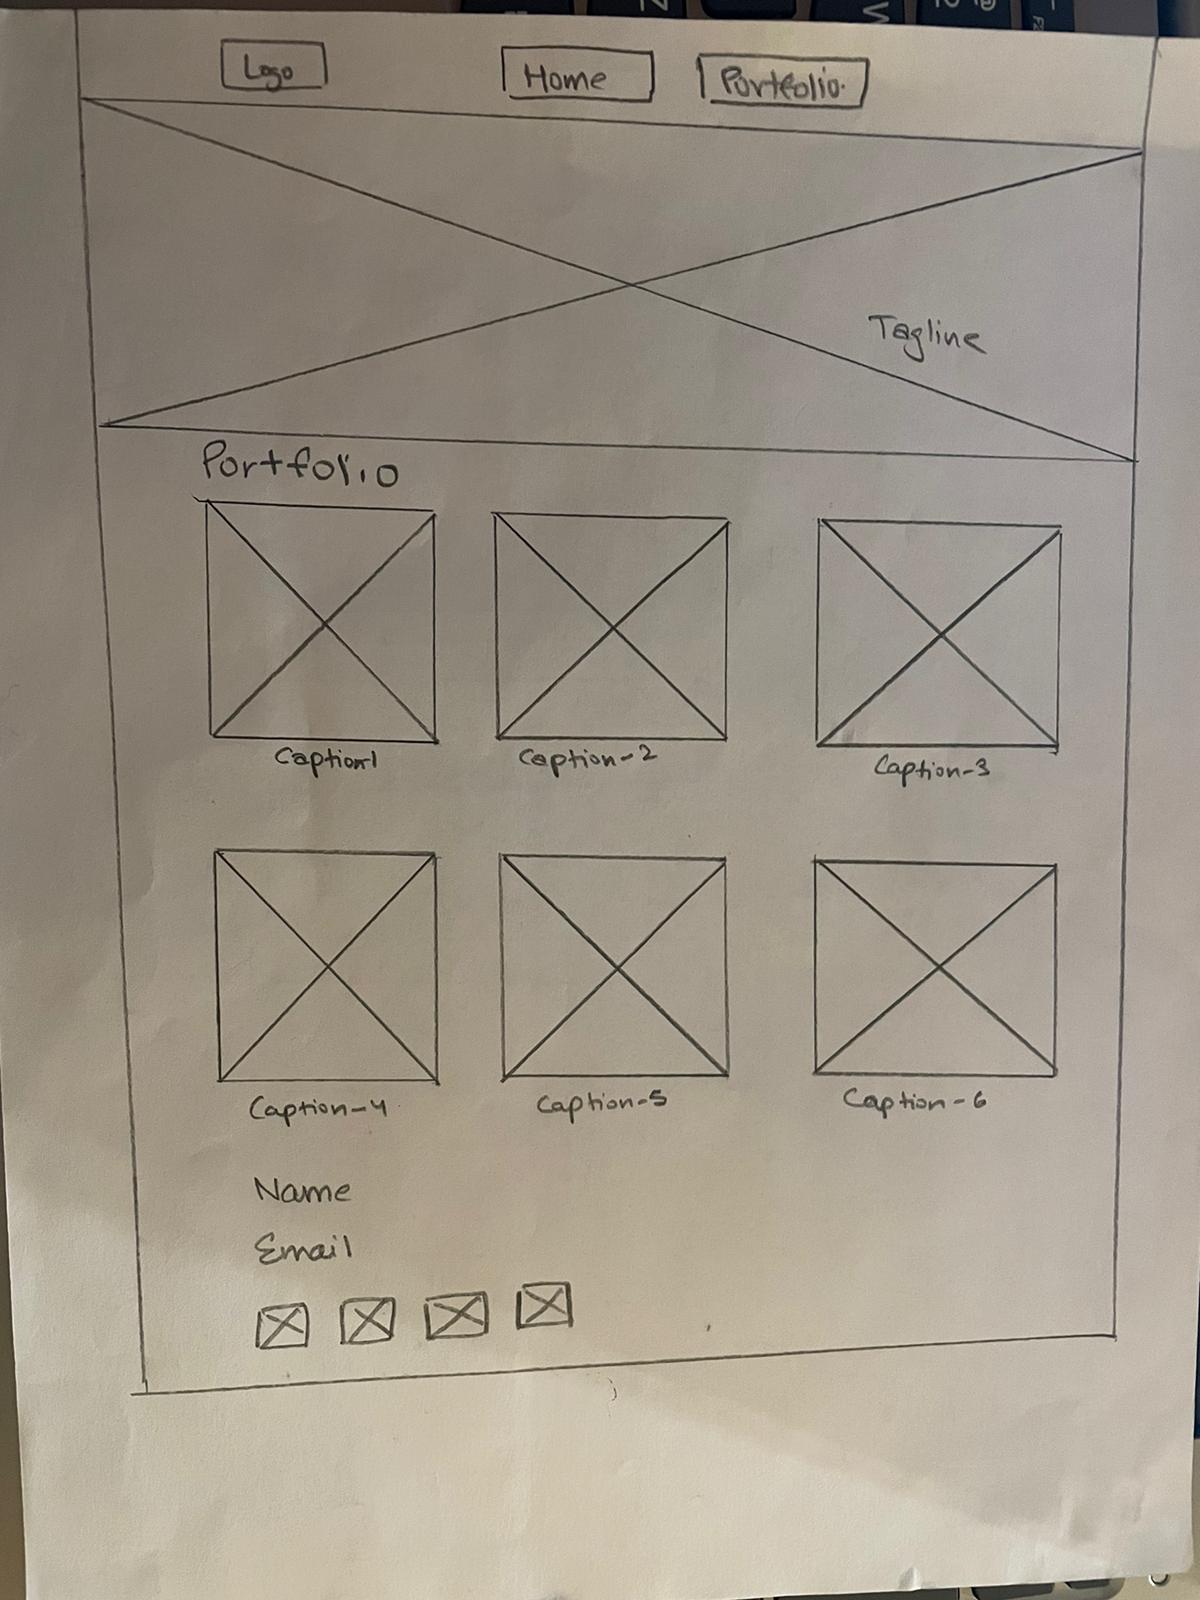 Logo Home Portfolio.
Tagline
Portfolio
Caption-1 Caption-2 Caption-3
Caption-4 Caption-5 Caption-6
Name
Email